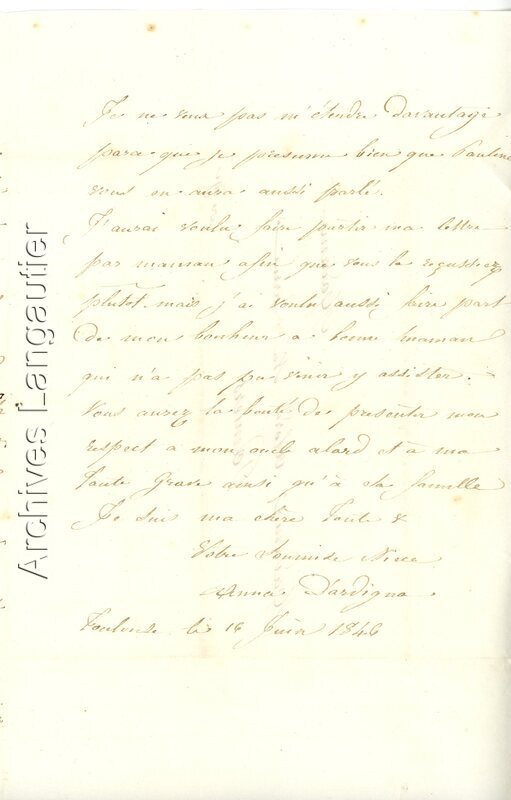 Je ne veux pas m'étendre davantage
parce que je presume bien que Pauline
vous en aura aussi parlé.
J'aurai voulu faire partir ma lettre
par maman afin que vous la reçussiez
plutot mais j'ai voulu aussi faire part
de mon bonheur a bonne maman
qui n'a pas pu venir y assister.
Vous aurez la bonté de presenter mon
respect à mon oncle alard et à ma
tante Grave ainsi qu'à sa famille
Je suis ma chère tante &
Votre Soumise Niece
Anna Dardigna
Toulouse le 16 Juin 1846
Archives Langautier